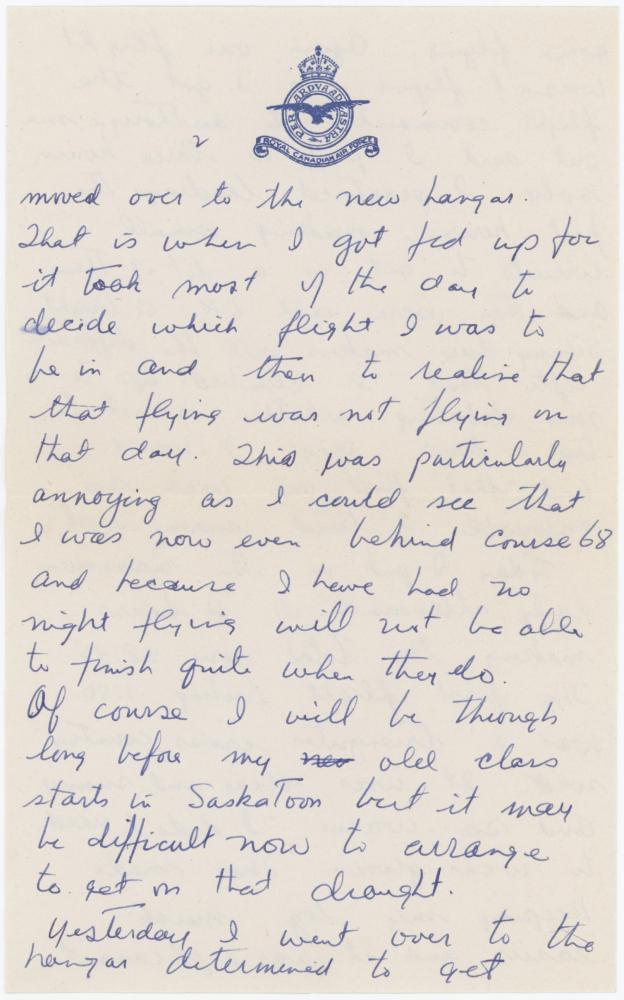 PER ARDVA AD ASTRA
ROYAL CANADIAN AIR FORCE
2
moved over to the new hangar.
That is when I got fed up for
it took most of the day to
decide which flight I was to
be in and then to realise that
that flying was not flying on
that day. This was particularly
annoying as I could see that
I was now even behind course 68
and because I have had no
night flying will not be able
to finish quite when they do.
Of course I will be through
long before my new old class
starts in Saskatoon but it may
be difficult now to arrange
to get on that draught.
Yesterday I went over to the
hangar determined to get